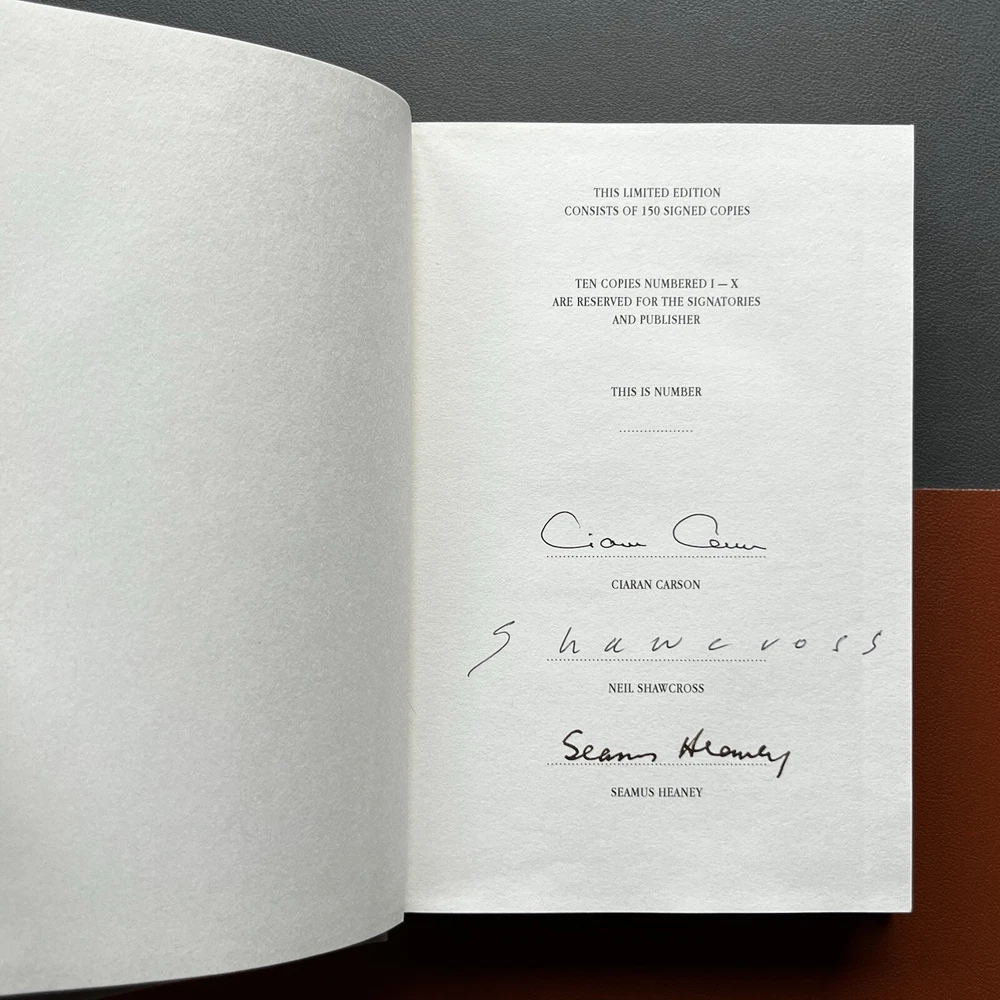 THIS LIMITED EDITION
CONSISTS OF 150 SIGNED COPIES
TEN COPIES NUMBERED I — X
ARE RESERVED FOR THE SIGNATORIES
AND PUBLISHER
THIS IS NUMBER
..................
Ciaran Carson
CIARAN CARSON
Shawcross
NEIL SHAWCROSS
Seamus Heaney
SEAMUS HEANEY